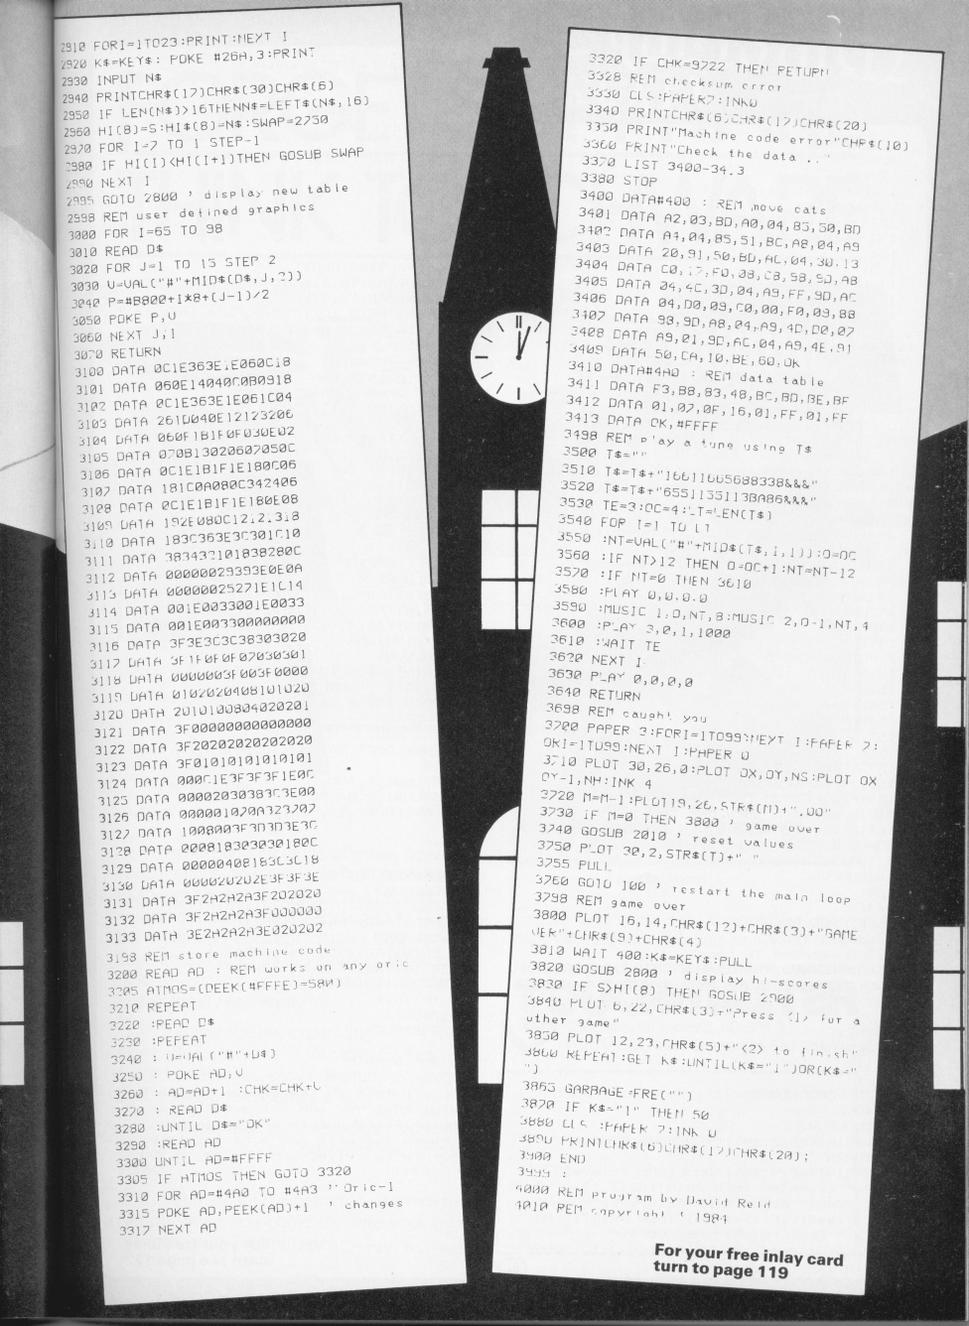 2910 FORI=1TO23:PRINT:NEXT I
2920 K$=KEY$: POKE #26A,3:PRINT
2930 INPUT N$
2940 PRINTCHR$(17)CHR$(30)CHR$(6)
2950 IF LEN(N$)>16THENN$=LEFT$(N$,16)
2960 HI(8)=S:HI$(8)=N$:SWAP=2750
2970 FOR I=7 TO 1 STEP-1
2980 IF HI(I)<HI(I+1)THEN GOSUB SWAP
2990 NEXT I
2995 GOTO 2800 ' display new table
2998 REM user defined graphics
3000 FOR I=65 TO 98
3010 READ D$
3020 FOR J=1 TO 15 STEP 2
3030 V=VAL("#"+MID$(D$,J,2))
3040 P=#B800+I*8+(J-1)/2
3050 POKE P,V
3060 NEXT J,I
3070 RETURN
3100 DATA 0C1E363E1E060C18
3101 DATA 060E14040C0B0918
3102 DATA 0C1E363E1E061C04
3103 DATA 261D040E12123206
3104 DATA 060F1B1F0F030E02
3105 DATA 070B13020607050C
3106 DATA 0C1E1B1F1E180C06
3107 DATA 181C0A080C342406
3108 DATA 0C1E1B1F1E180E08
3109 DATA
3110 DATA 183C363E3C301C10
3111 DATA 383432101838280C
3112 DATA 00000029393E0E0A
3113 DATA 00000025271E1C14
3114 DATA 001E0033001E0033
3115 DATA 001E003300000000
3116 DATA 3F3E3C3C38303020
3117 DATA 3F1F0F0F07030301
3118 DATA 0000003F003F0000
3119 DATA 0102020408101020
3120 DATA 2010100804020201
3121 DATA 3F00000000000000
3122 DATA 3F20202020202020
3123 DATA 3F01010101010101
3124 DATA 000C1E3F3F3F1E0C
3125 DATA 00002030383C3E00
3126 DATA 000001070A323207
3127 DATA 1008003F3D3D3E3C
3128 DATA 000818303030180C
3129 DATA 00000408183C3C18
3130 DATA 000020202E3F3F3E
3131 DATA 3F2A2A2A3F202020
3132 DATA 3F2A2A2A3F000000
3133 DATA 3E2A2A2A3E020202
3198 REM store machine code
3200 READ AD : REM works on any oric
3205 ATMOS=(DEEK(#FFFE)=580)
3210 REPEAT
3220 :READ D$
3230 :REPEAT
3240 : V=VAL("#"+D$)
3250 : POKE AD,V
3260 : AD=AD+1 :CHK=CHK+V
3270 : READ D$
3280 :UNTIL D$="OK"
3290 :READ AD
3300 UNTIL AD=#FFFF
3305 IF ATMOS THEN GOTO 3320
3310 FOR AD=#4A0 TO #4A3 ' Oric-1
3315 POKE AD,PEEK(AD)+1 ' changes
3317 NEXT AD
3320 IF CHK=9722 THEN RETURN
3328 REM checksum error
3330 CLS:PAPER7:INK0
3340 PRINTCHR$(6)CHR$(17)CHR$(20)
3350 PRINT"Machine code error"CHR$(10)
3360 PRINT"Check the data .."
3370 LIST 3400-3413
3380 STOP
3400 DATA#400 : REM move cats
3401 DATA A2,03,BD,A0,04,85,50,BD
3402 DATA A4,04,85,51,BC,A8,04,A9
3403 DATA 20,91,50,BD,AC,04,30,13
3404 DATA C0,17,F0,08,C8,98,9D,A8
3405 DATA 04,4C,3D,04,A9,FF,9D,AC
3406 DATA 04,D0,09,C0,00,F0,09,88
3407 DATA 98,9D,A8,04,A9,4D,D0,07
3408 DATA A9,01,9D,AC,04,A9,4E,91
3409 DATA 50,CA,10,BE,60,OK
3410 DATA#4A0 : REM data table
3411 DATA F3,B8,83,48,BC,BD,BE,BF
3412 DATA 01,07,0F,16,01,FF,01,FF
3413 DATA OK,#FFFF
3498 REM play a tune using T$
3500 T$=""
3510 T$=T$+"16611665688338&&&"
3520 T$=T$+"65511551138A86&&&"
3530 TE=3:OC=4:LT=LEN(T$)
3540 FOR I=1 TO LT
3550 :NT=VAL("#"+MID$(T$,I,1)):O=OC
3560 :IF NT>12 THEN O=OC+1:NT=NT-12
3570 :IF NT=0 THEN 3610
3580 :PLAY 0,0,0,0
3590 :MUSIC 1,O,NT,8:MUSIC 2,O-1,NT,4
3600 :PLAY 3,0,1,1000
3610 :WAIT TE
3620 NEXT I
3630 PLAY 0,0,0,0
3640 RETURN
3698 REM caught you
3700 PAPER 3:FORI=1TO99:NEXT I:PAPER 7:
ORI=1TO99:NEXT I:PAPER 0
3710 PLOT 30,26,0:PLOT OX,OY,NS:PLOT OX
OY-1,NH:INK 4
3720 M=M-1:PLOT19,26,STR$(M)+".00"
3730 IF M=0 THEN 3800 ' game over
3740 GOSUB 2010 ' reset values
3750 PLOT 30,2,STR$(T)+" "
3755 PULL
3760 GOTO 100 ' restart the main loop
3798 REM game over
3800 PLOT 16,14,CHR$(12)+CHR$(3)+"GAME
VER"+CHR$(9)+CHR$(4)
3810 WAIT 400:K$=KEY$:PULL
3820 GOSUB 2800 ' display hi-scores
3830 IF S>HI(8) THEN GOSUB 2900
3840 PLOT 6,22,CHR$(3)+"Press <1> for a
other game"
3850 PLOT 12,23,CHR$(5)+"<2> to finish"
3860 REPEAT:GET K$:UNTIL(K$="1")OR(K$="
")
3865 GARBAGE=FRE("")
3870 IF K$="1" THEN 50
3880 CLS :PAPER 7:INK 0
3890 PRINTCHR$(6)CHR$(17)CHR$(20);
3900 END
3999 :
4000 REM program by David Reid
4010 REM copyright 1984
For your free inlay card
turn to page 119